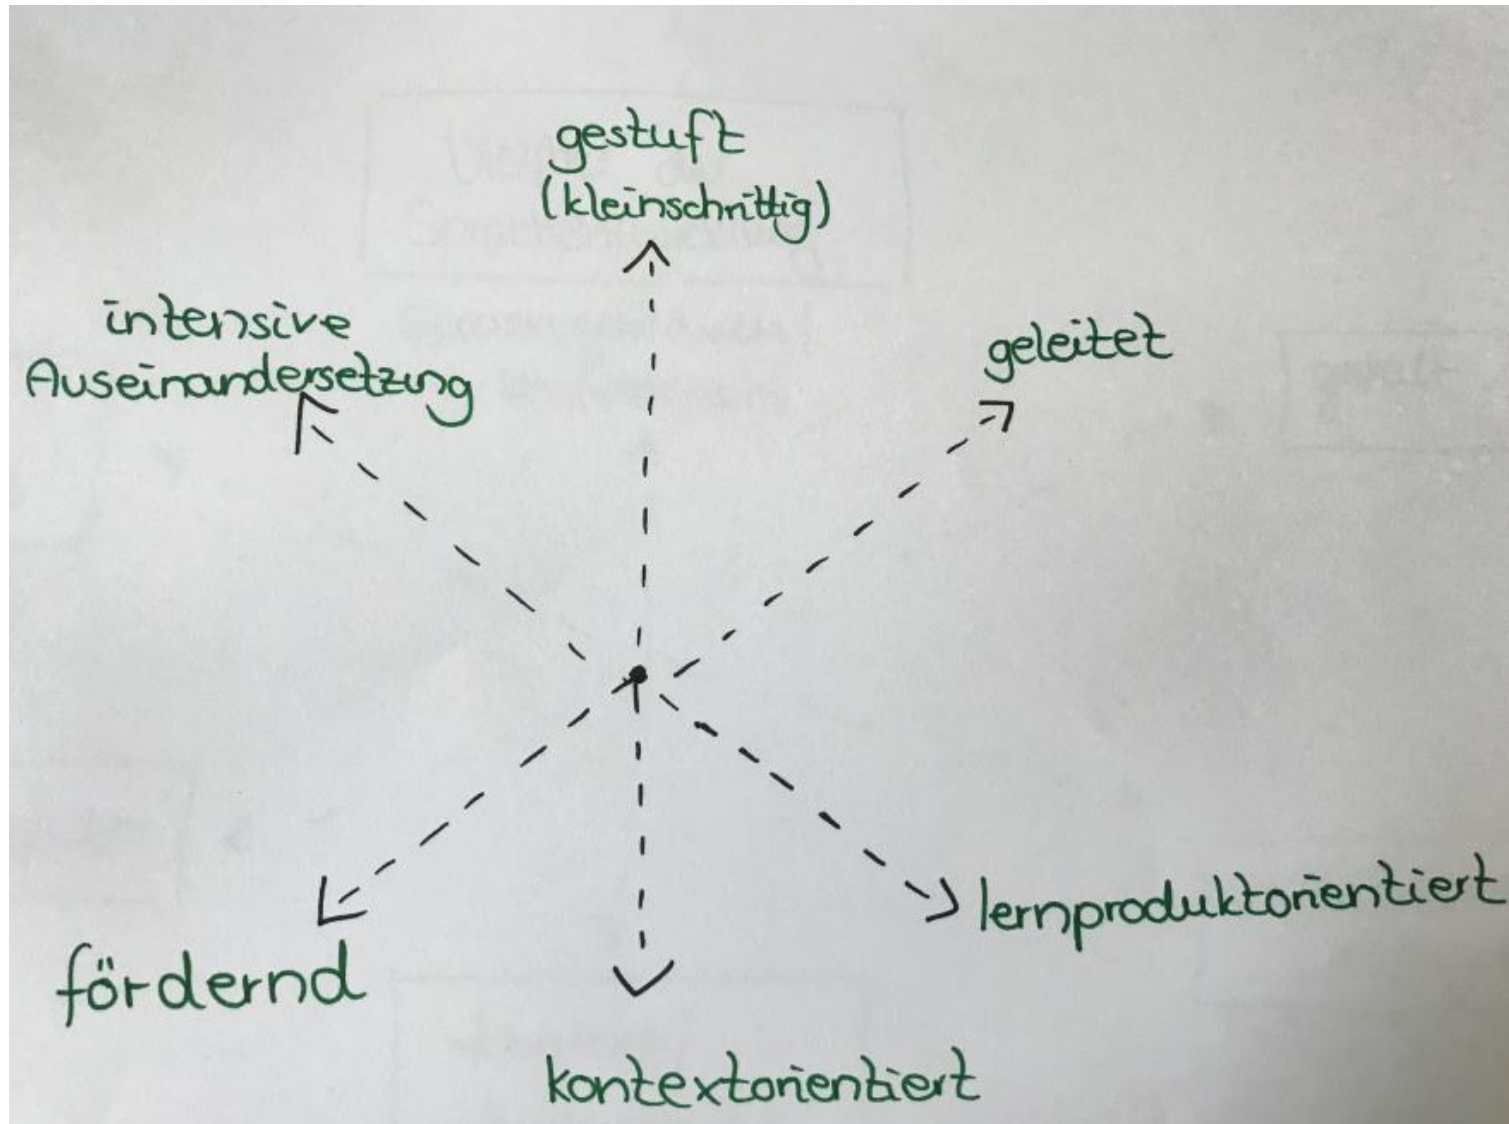 gestuft
(kleinschrittig)
intensive
Auseinandersetzung
geleitet
lernproduktorientiert
fördernd
kontextorientiert